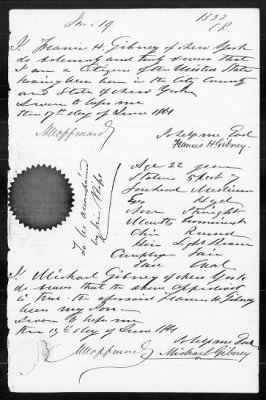 No 19
1532
I Francis H. Gibney of New York
do solemnly and truly swear that
I am a Citizen of the United States
having been born in the City County
and State of New York
Sworn to before me
this 17th day of June 1861
So help me God
Francis H. Gibney.
To be accompanied
by his
Age 22 years
Stature 5 feet 7
Forehead Medium
Eyes Hazel
Nose Straight
Mouth
Chin Round
Hair Light Brown
Complexion Fair
Face Oval
I Michael Gibney of New York
do swear that the above affidavit
is true. the aforesaid Francis H. Gibney
being my Son
Sworn to before me
this 17th day of June 1861
So help me God
Michael Gibney